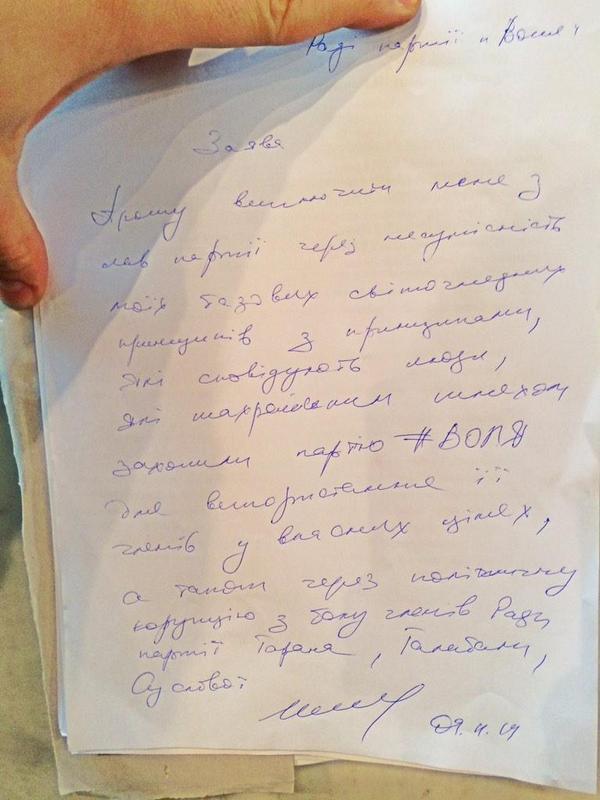 Раді партії "Воля"
Заява
Прошу виключити мене з
лав партії через несумісність
моїх базових світоглядних
принципів з принципами,
які сповідують люди,
які шахрайським шляхом
захопили партію #ВОЛЯ
для використання її
членів у власних цілях,
а також через політичну
корупцію з боку членів Ради
партії Тарана, Галабали,
Суслової
09.11.14